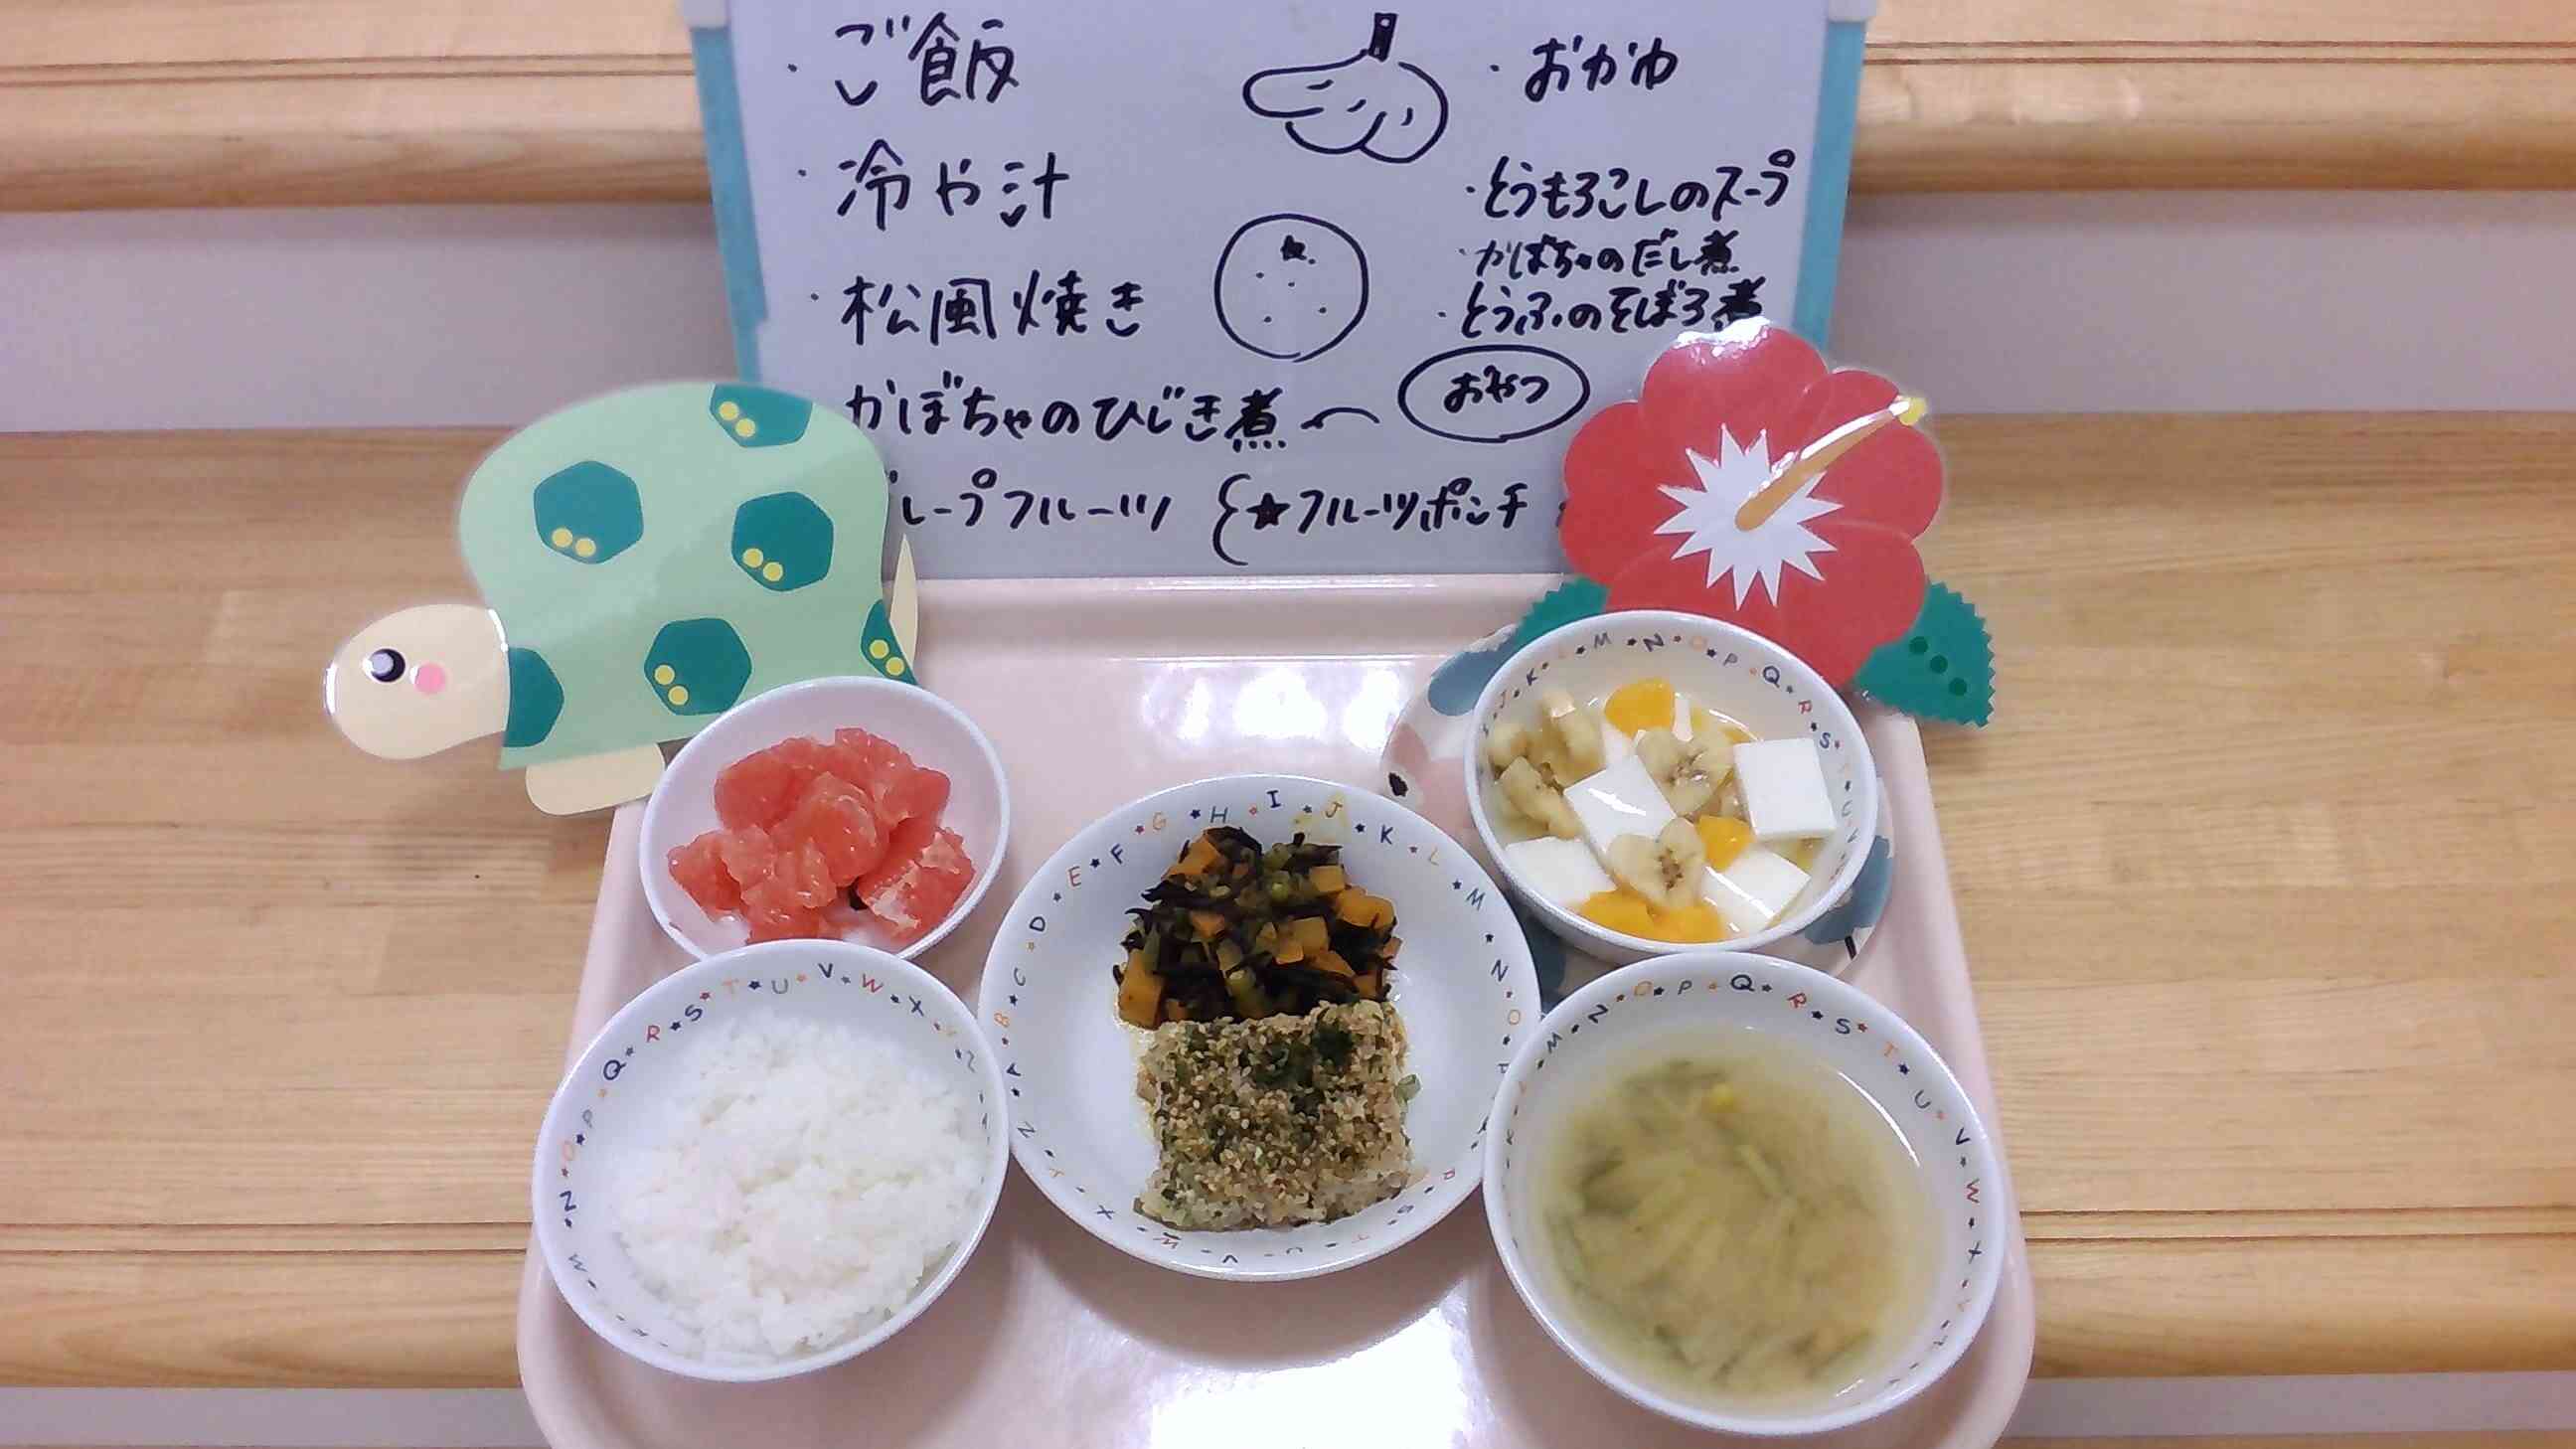 ・ご飯
・冷や汁
・松風焼き
かぼちゃのひじき煮
レープフルーツ
・おかゆ
・とうもろこしのスープ
・かぼちゃのだし煮
・とうふのそぼろ煮
おやつ
★フルーツポンチ
J K L M N O P Q R S T U V
A B C D E F G H I J K L M N O
R S T U V W X Y Z
N O P Q R S T U V W X Y Z
M N O P Q R S T U V W X Y Z